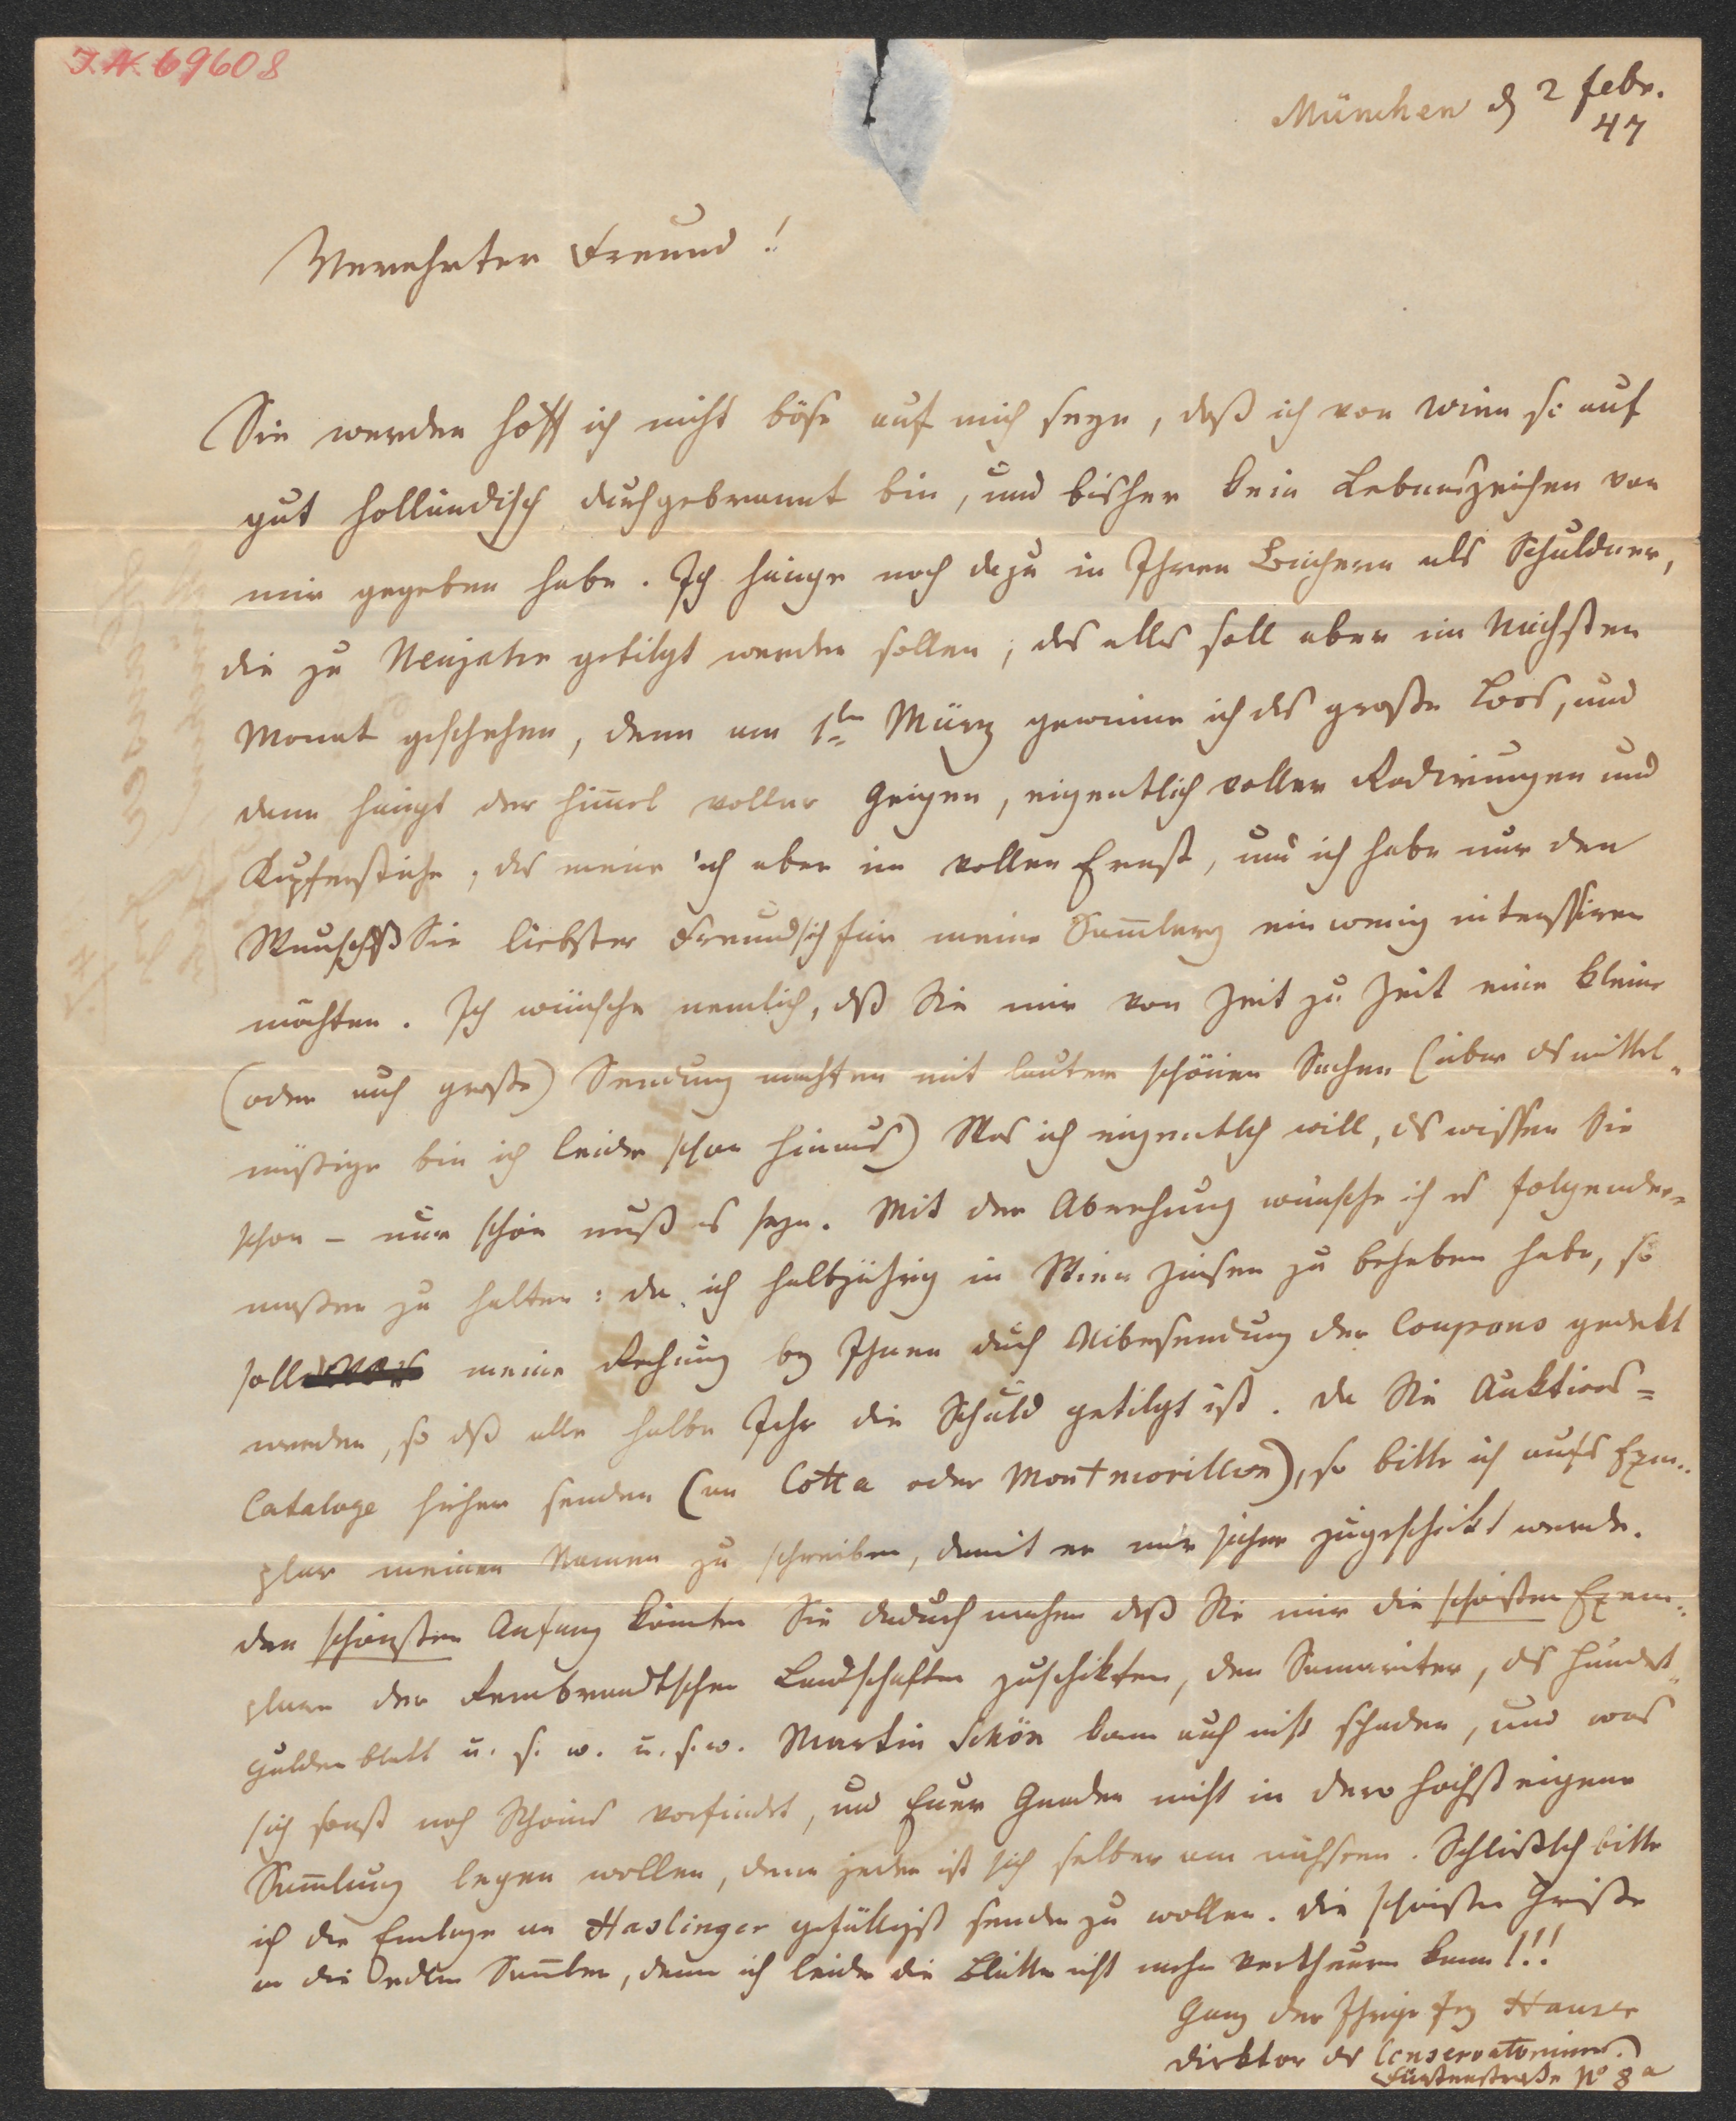 I.N. 69608
München d 2 Febr.
47
Verehrter Freund!
Sie werden hoff ich nicht böse auf mich seyn, daß ich von Wien so auf
gut holländisch durchgebrannt bin, und bisher kein Lebenszeichen von
mir gegeben habe. Ich hänge noch dazu in Ihren Büchern als Schuldner,
die zu Neujahr getilgt werden sollen; das alles soll aber im Nächsten
Monat geschehen, denn am 1ten März gewinne ich das große Loos, und
dann hängt der Himel voller Geigen, eigentlich voller Radirungen und
Kupferstiche, das meine ich aber im vollen Ernst, und ich habe nur den
Wunsch dß Sie liebster Freund sich für meine Samlung ein wenig interessiren
möchten. Ich wünsche nemlich, dß Sie mir von Zeit zu Zeit eine kleine
(oder auch große) Sendung machten mit lauter schönen Sachen (über das mittel-
mäßige bin ich leider schon hinaus) Was ich eigentlich will, das wissen Sie
schon – nur schön muß es seyn. Mit der Abrechung wünsche ich es folgender-
maßen zu halten: da ich halbjährig in Wien Zinsen zu beheben habe, so
soll meine Rechnung bey Ihnen durch Uibersendung der Coupons gedekt
werden, so dß alle halbe Jahr die Schuld getilgt ist. Da Sie Auktions=
Cataloge hieher senden (an Cotta oder Montmorillon), so bitte ich aufs Exem-
plar meinen Namen zu schreiben, damit er mir sicher zugeschikt werde.
Den schönsten Anfang könnten Sie dadurch machen daß Sie mir die schönsten Exem-
plare der Rembrandtschen Landschaften zuschikten, den Samariter, das Hundert-
guldenblatt u. s. w. u. s. w. Martin Schön kann auch nicht schaden, und was
sich sonst noch Schönes vorfindet, und Euer Gnaden nicht in dero höchst eigene
Samlung legen wollen, denn jeder ist sich selber am nächsten. Schließlich bitte
ich die Einlage an Haslinger gefälligst senden zu wollen. Die schönsten Grüße
an die edlen Samler, denen ich leider die Blätter nicht mehr vertheuern kann!!!
Ganz der Ihrige Frz Hauser
Direktor des Conservatoriums.
Fürstenstraße No 8a